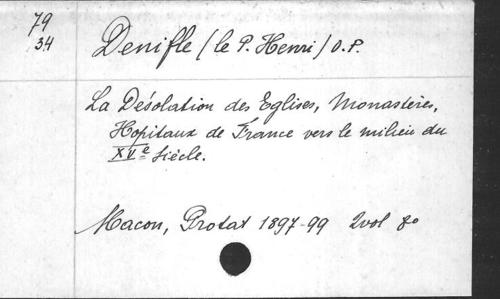 79
34
Denifle (le P. Henri) O.P.
La Désolation des Eglises, Monastères,
Hopitaux de France vers le milieu du
XVe Siècle.
Macon, Protat 1897-99 2vol 8o